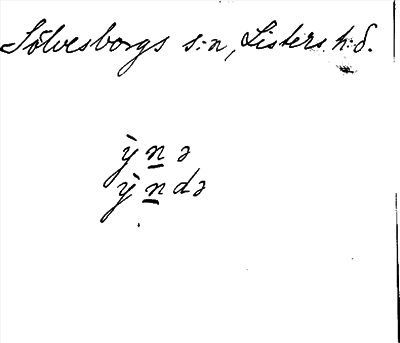 Sölvesborgs s:n, Listers h:d.
ỳn̲ə
ỳn̲də